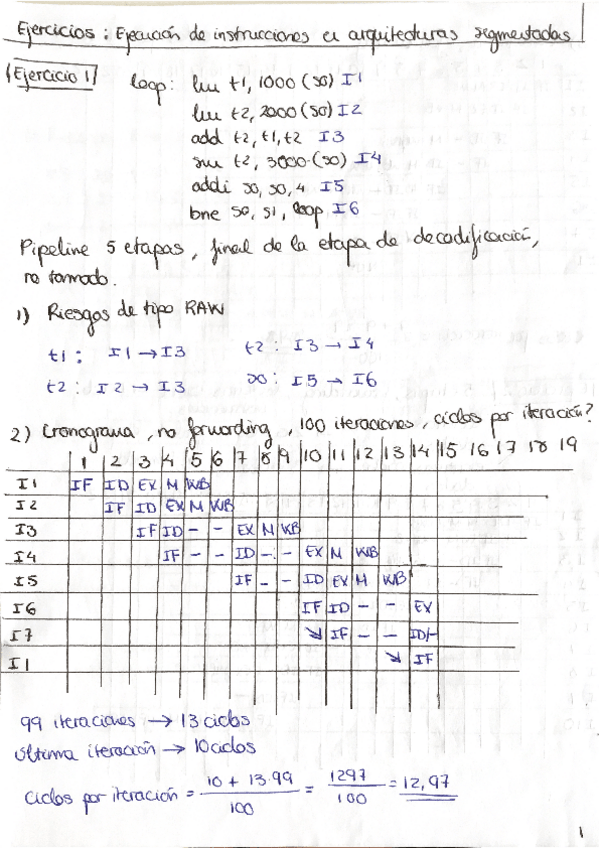 Ejercicios: Ejecución de instrucciones en arquitecturas segmentadas
Ejercicio 1
loop: lw t1, 1000 (s0) I1
lw t2, 2000 (s0) I2
add t2, t1, t2 I3
sw t2, 3000 (s0) I4
addi s0, s0, 4 I5
bne s0, s1, loop I6
Pipeline 5 etapas, final de la etapa de decodificación,
no tomado.
1) Riesgos de tipo RAW
t1: I1 → I3 t2: I3 → I4
t2: I2 → I3 s0: I5 → I6
2) Cronograma, no forwarding, 100 iteraciones, ciclos por iteración?
1 2 3 4 5 6 7 8 9 10 11 12 13 14 15 16 17 18 19
I1 IF ID EX M WB
I2 IF ID EX M WB
I3 IF ID - - EX M WB
I4 IF - - ID - - EX M WB
I5 IF - - ID EX M WB
I6 IF ID - - EX
I7 ↘ IF - - ID/-
I1 ↘ IF
99 iteraciones → 13 ciclos
Última iteración → 10 ciclos
Ciclos por iteración = 10 + 13·99 / 100 = 1297 / 100 = 12,97
1